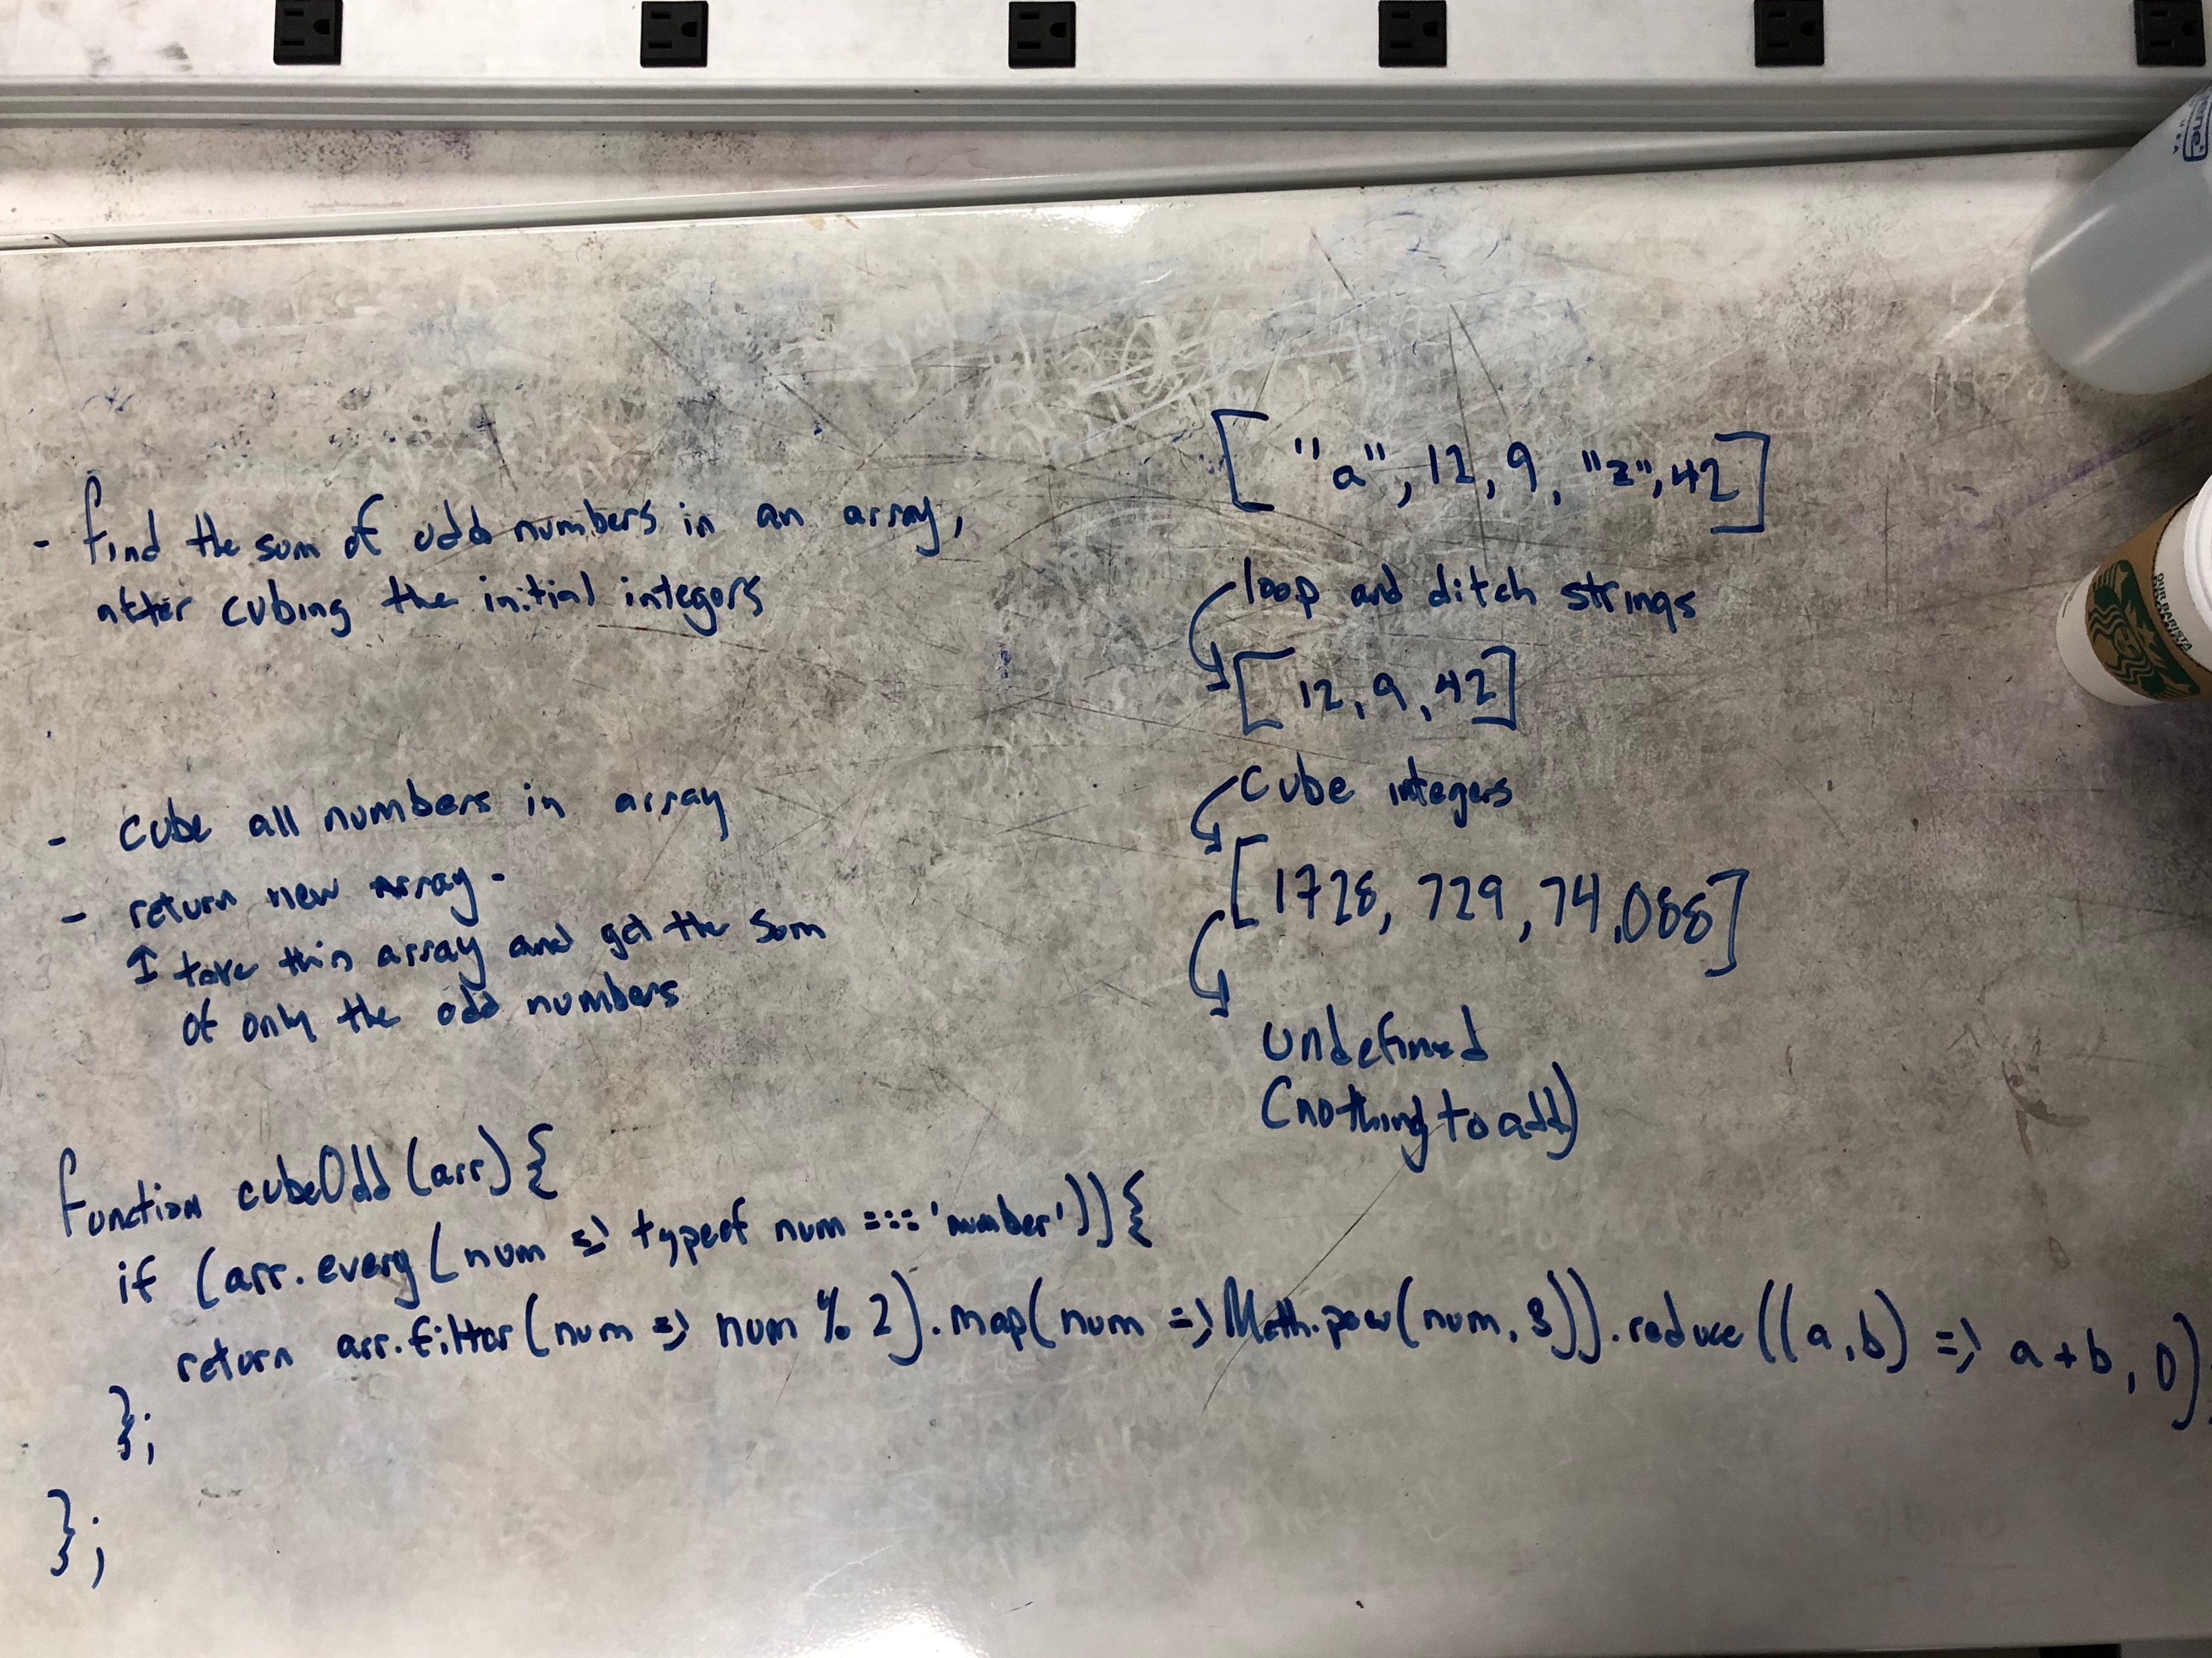 - find the sum of odd numbers in an array,
after cubing the initial integers
- cube all numbers in array
- return new array -
I take this array and get the sum
of only the odd numbers
["a", 12, 9, "z", 42]
loop and ditch strings
[12, 9, 42]
cube integers
[1728, 729, 74,088]
undefined
(nothing to add)
function cubeOdd (arr) {
if (arr.every(num => typeof num === 'number')) {
return arr.filter(num => num % 2).map(num => Math.pow(num, 3)).reduce((a, b) => a + b, 0)
};
};
OUR BARISTA